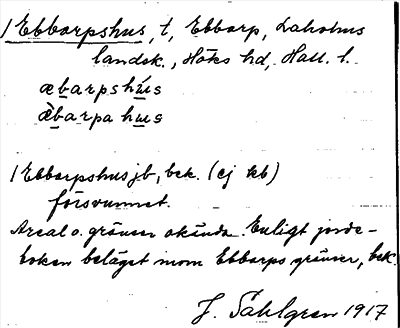 / Ebbarpshus, t, Ebbarp, Laholms
landsk., Höks hd, Hall. l.
æbarpshús
æ̀barpa hus
/ Ebbarpshus jb, bek. (ej kb)
försvunnet.
Areal o. gränser okända. Enligt jorde-
boken beläget inom Ebbarps gränser, bek.
J. Sahlgren 1917